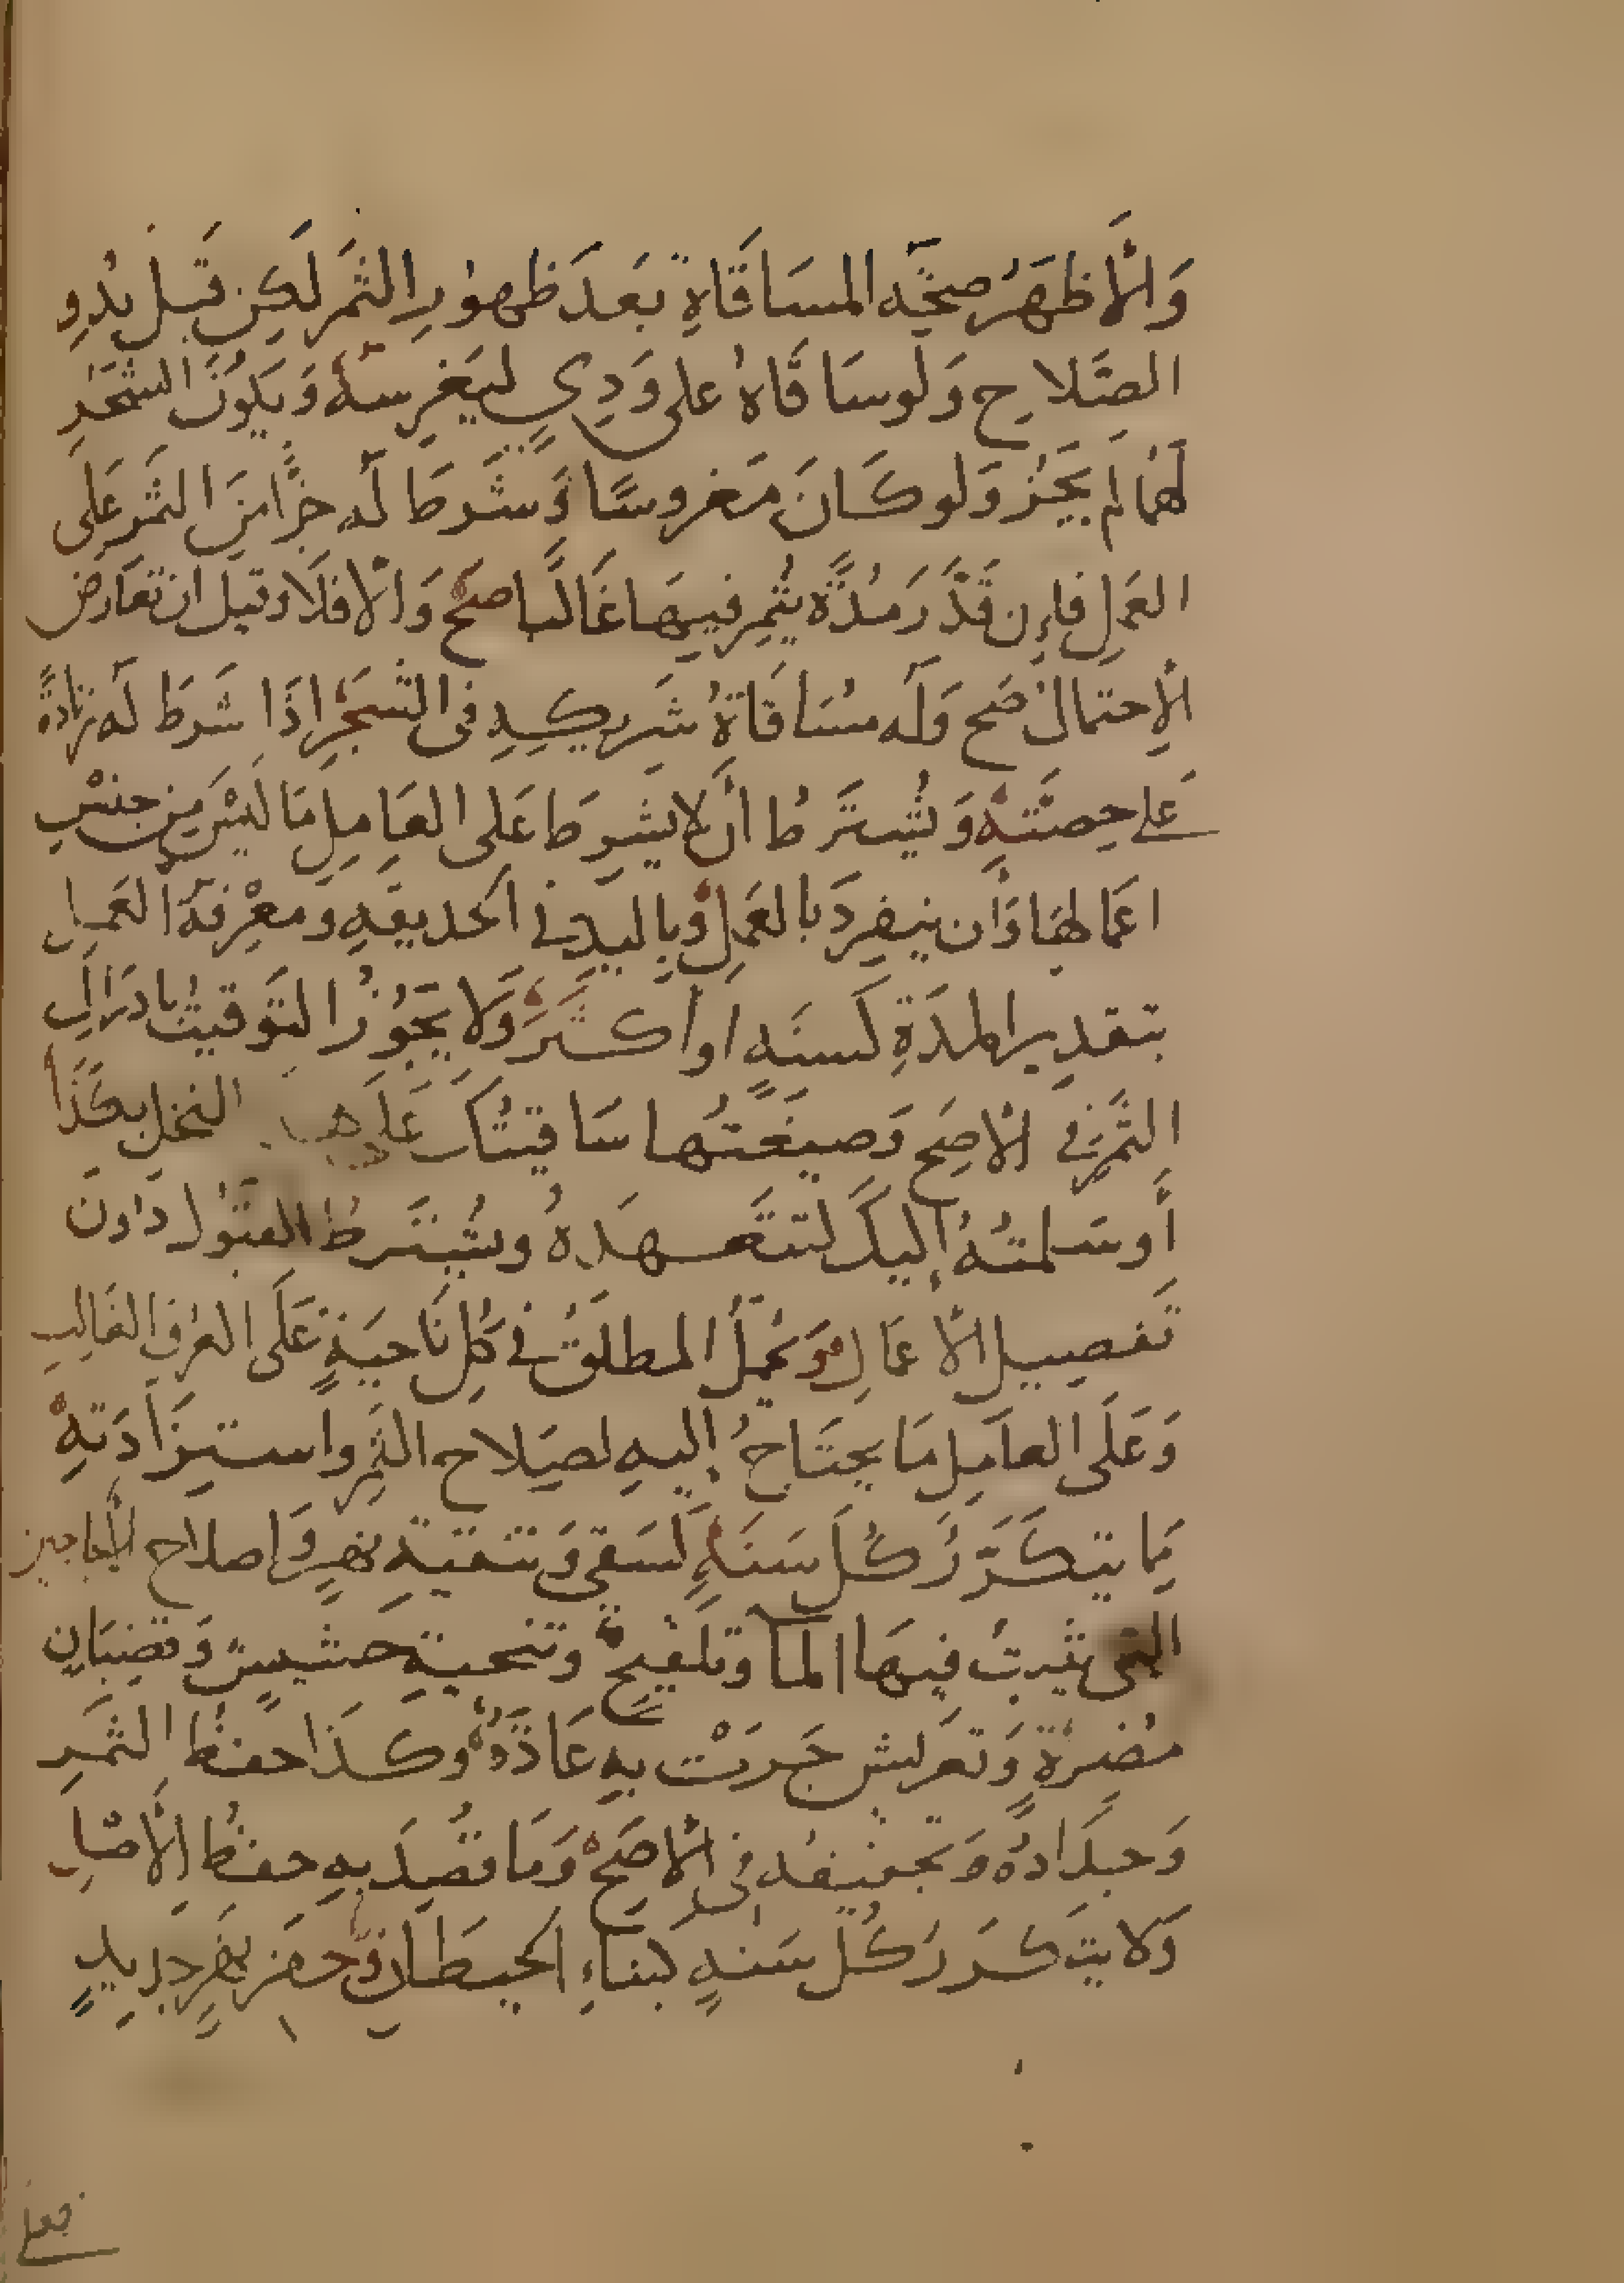 وَالْأظهَرُ صحَّة المسَاقَاةِ بَعدَ ظهوُرِ الثمَر لَكِن قَبل بُدوِ
الصَّلاحِ وَلَو سَاقَاهُ على وَدِيٍ لِيَغرِسَهُ وَيَكُونَ الشجَر
لَهُمَا لم يَجُز وَلو كَانَ مَغروسًا وَشَرطَ لَه جُزًا مِنَ الثمَر عَلى
العَمَلِ فإِن قَدَّرَ مُدَّة يُثمِر فيهَا غَالبًا صَحَّ وَالا فلَا وقيل ان تعَارض
الإحتمالان صَح وَلَه مُسَاقَاةُ شَرِيكِهِ في الشجَرِ إذَا شرَطَ لَه زيَادةً
عَلى حِصتهِ وَيُشتَرطُ أن لا يَشرِطَ عَلى العَامِلِ مَا ليْسَ مِن جنسِ
اعمَالِهَا وَأن ينفرِدَ بالعَمَلِ وَباليدِ في الحديقَةِ ومعرِفة العَمل
بتقدِير المدَةِ كَسنَةٍ او أكثرَ وَلا يَجُوزُ التَوقيتُ بادرَاكِ
الثَّمَر في الاصَح وَصيغَتُهَا سَاقيتُكَ عَلى هذا النخل بكَذَا
أو سَلمتُهُ إليكَ لتَتعَهدَهُ ويُشتَرطُ القبُول دُونَ
تَفصِيل الاعمَالِ وَيُحمَلُ المطلَقُ في كُلِ نَاحيَةٍ عَلَى العُرفِ الغَالِب
وَعَلَى العَامِل مَا يحتَاجُ إليهِ لصَلاح الثمَرِ واستِزَادَتهِ
مِمَا يتكَرَّرُ كُلَ سَنَةٍ كَسَقي وَتنقيَةِ نهرٍ وَإصلاح الأجَاجين
التي يثبت فِيهَا المآ وتلقيحٍ وتنحيَةِ حَشيشٍ وَقضبَانٍ
مُضِرةٍ وَتعريشٍ جَرَتْ بهِ عَادَةٌ وكذَا حفظُ الثمَرِ
وَجدَادُه وَتجفيفه في الأصَحِّ وَمَا قُصِدَ بهِ حفظُ الأصْلِ
وَلا يتَكرَرُ كُلَ سَنةٍ كبنَاءِ الحِيطَان وَحفر نهرٍ جديدٍ
فعلى